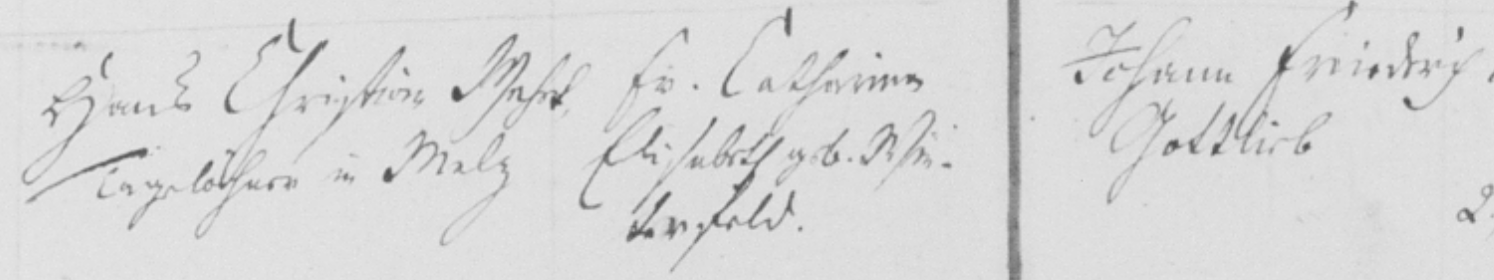 Hans Christian
Tagelöhner in Melz
Fr. Catharina
Elisabeth geb. Win-
terfeld.
Johann Friederich
Gottlieb